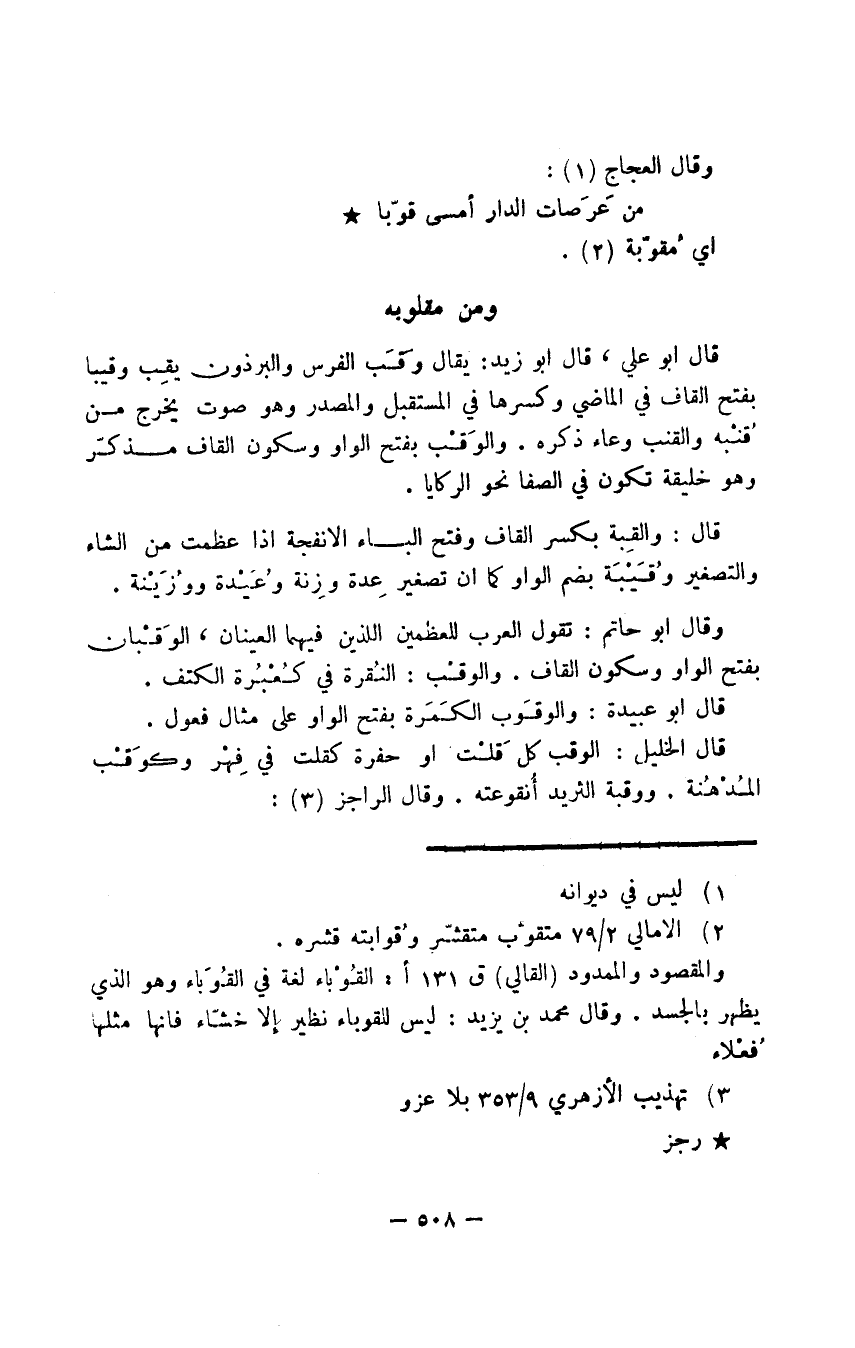 وقال العجاج (١) :
من عَرَصات الدار أمسى قوّبا ★
اي مُقوّبة (٢) .
ومن مقلوبه
قال ابو علي ، قال ابو زيد: يقال وَقَب الفرس والبرذون يقِب وقيبا
بفتح القاف في الماضي وكسرها في المستقبل والمصدر وهو صوت يخرج من
قُنْبه والقنب وعاء ذكره . والوَقْب بفتح الواو وسكون القاف مذكّر
وهو خليقة تكون في الصفا نحو الركايا .
قال : والقِبة بكسر القاف وفتح الباء الانفجة اذا عظمت من الشاء
والتصغير وُقَيْبَة بضم الواو كما ان تصغير عِدة وزِنة وُعَيْدة ووُزَيْنة .
وقال ابو حاتم : تقول العرب للعظمين اللذين فيهما العينان ، الوَقْبان
بفتح الواو وسكون القاف . والوقْب : النُقرة في كُعْبُرة الكتف .
قال ابو عبيدة : والوقَوب الكَمَرة بفتح الواو على مثال فعول .
قال الخليل : الوقب كل قَلْت او حفرة كقلت في فِهْر وكوَقْب
المُدْهُنة . ووقبة الثريد أُنقوعته . وقال الراجز (٣) :
١) ليس في ديوانه
٢) الامالي ٧٩/٢ متقوّب متقشّر وقُوابته قشره .
والمقصود والممدود (القالي) ق ١٣١ أ : القُوْباء لغة في القُوَباء وهو الذي
يظهر بالجسد . وقال محمد بن يزيد : ليس للقوباء نظير إلا خشّاء فانها مثلها
فُعْلاء
٣) تهذيب الأزهري ٣٥٣/٩ بلا عزو
★ رجز
— ٥٠٨ —